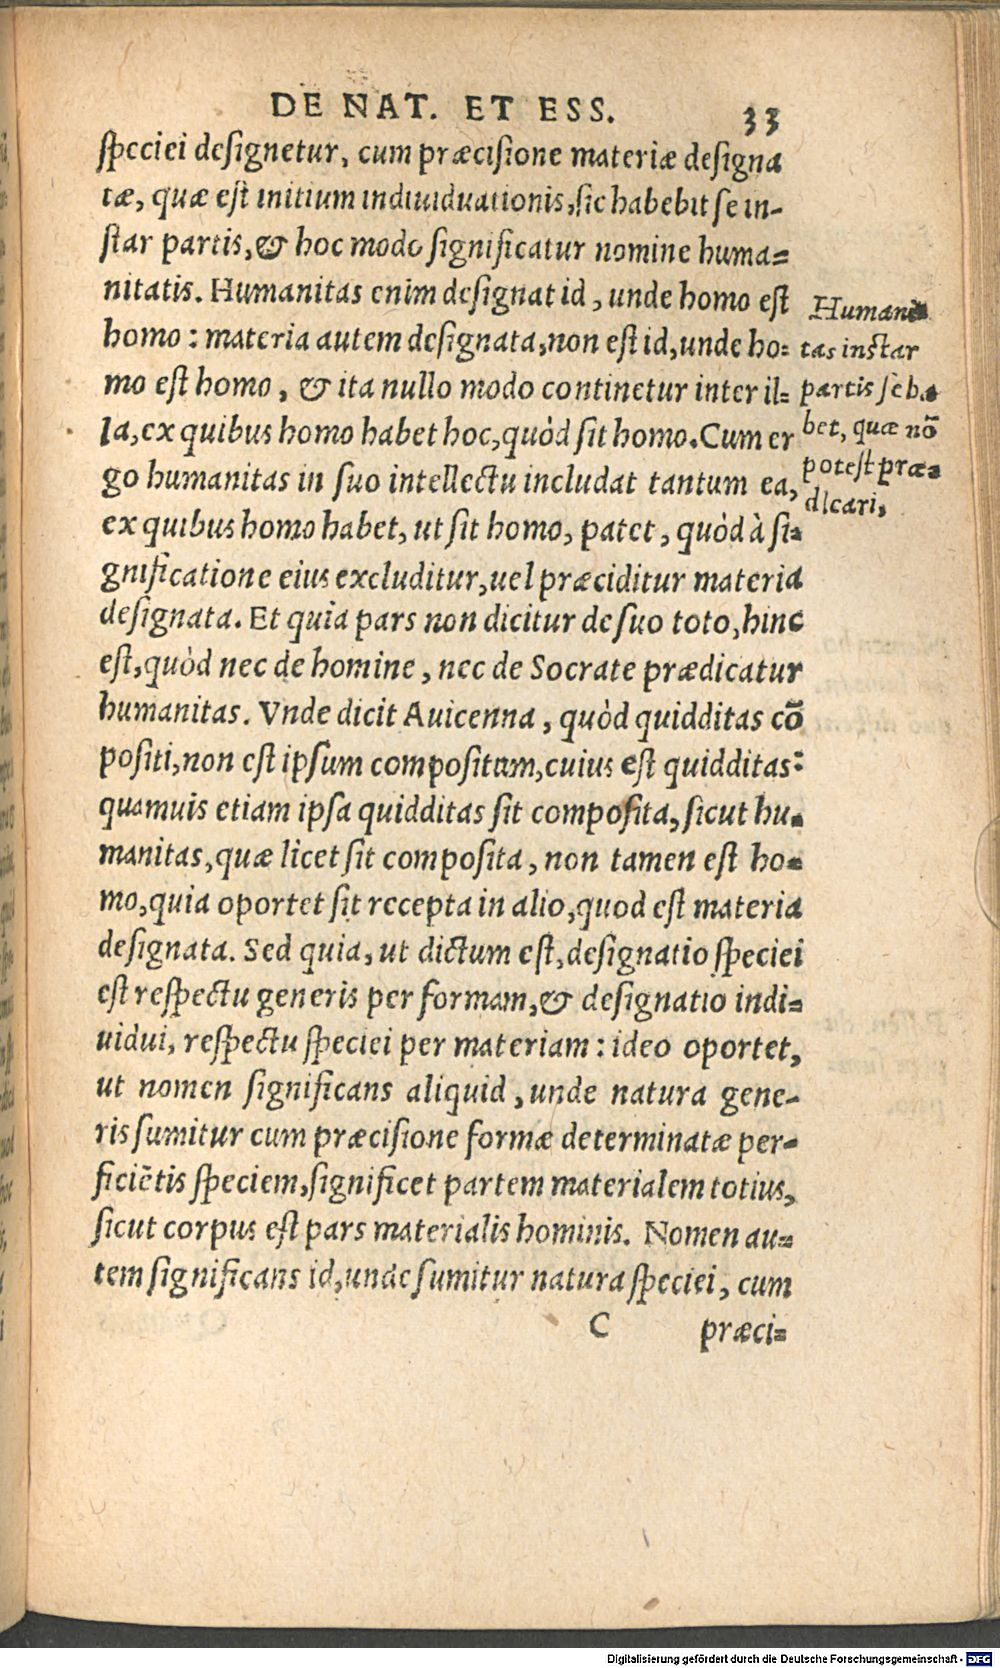 DE NAT. ET ESS. 33
speciei designetur, cum præcisione materiæ designa
tæ, quæ est initium indiuiduationis, sic habebit se in-
star partis, & hoc modo significatur nomine huma=
nitatis. Humanitas enim designat id, unde homo est
homo: materia autem designata, non est id, unde ho=
mo est homo, & ita nullo modo continetur inter il=
la, ex quibus homo habet hoc, quòd sit homo. Cum er
go humanitas in suo intellectu includat tantum ea,
ex quibus homo habet, ut sit homo, patet, quòd à si=
gnificatione eius excluditur, uel præciditur materia
designata. Et quia pars non dicitur de suo toto, hinc
est, quòd nec de homine, nec de Socrate prædicatur
humanitas. Vnde dicit Auicenna, quòd quidditas cō
positi, non est ipsum compositum, cuius est quidditas:
quamuis etiam ipsa quidditas sit composita, sicut hu=
manitas, quæ licet sit composita, non tamen est ho=
mo, quia oportet sit recepta in alio, quod est materia
designata. Sed quia, ut dictum est, designatio speciei
est respectu generis per formam, & designatio indi=
uidui, respectu speciei per materiam: ideo oportet,
ut nomen significans aliquid, unde natura gene-
ris sumitur cum præcisione formæ determinatæ per=
ficiētis speciem, significet partem materialem totius,
sicut corpus est pars materialis hominis. Nomen au=
tem significans id, unde sumitur natura speciei, cum
C præci=
Humani
tas instar
partis se ha
bet, quæ nō
potest præ=
dicari,
Digitalisierung gefördert durch die Deutsche Forschungsgemeinschaft - DFG